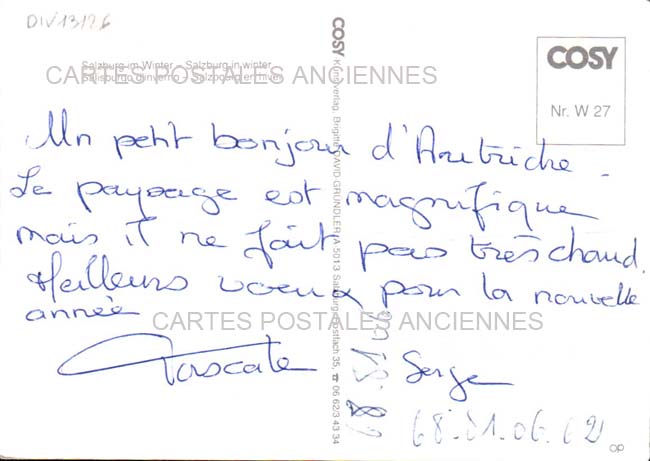 DIV13126
Salzburg im Winter – Salzburg in winter
Salisburgo d'inverno – Salzbourg en hiver
CARTES POSTALES ANCIENNES
COSY
Nr. W 27
COSY Kunstverlag, Brigitte DAVID-GRÜNDLER, A 5013 Salzburg, Postfach 35, ☎ 06 62/3 43 34
Un petit bonjour d'Autriche.
Le paysage est magnifique
mais il ne fait pas très chaud.
Meilleurs voeux pour la nouvelle
année
CARTES POSTALES ANCIENNES
Pascale Serge
OP